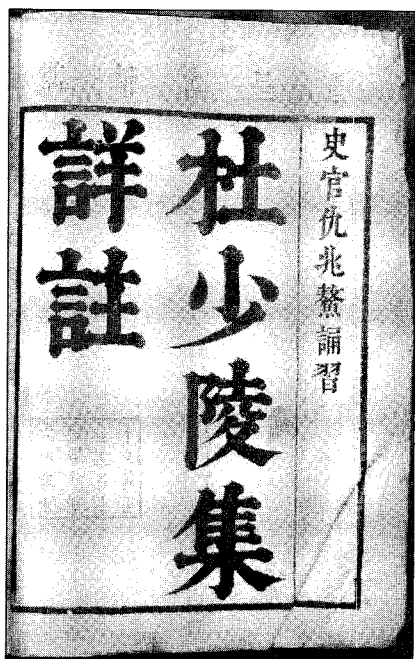 史官仇兆鰲誦習
杜少陵集
詳註